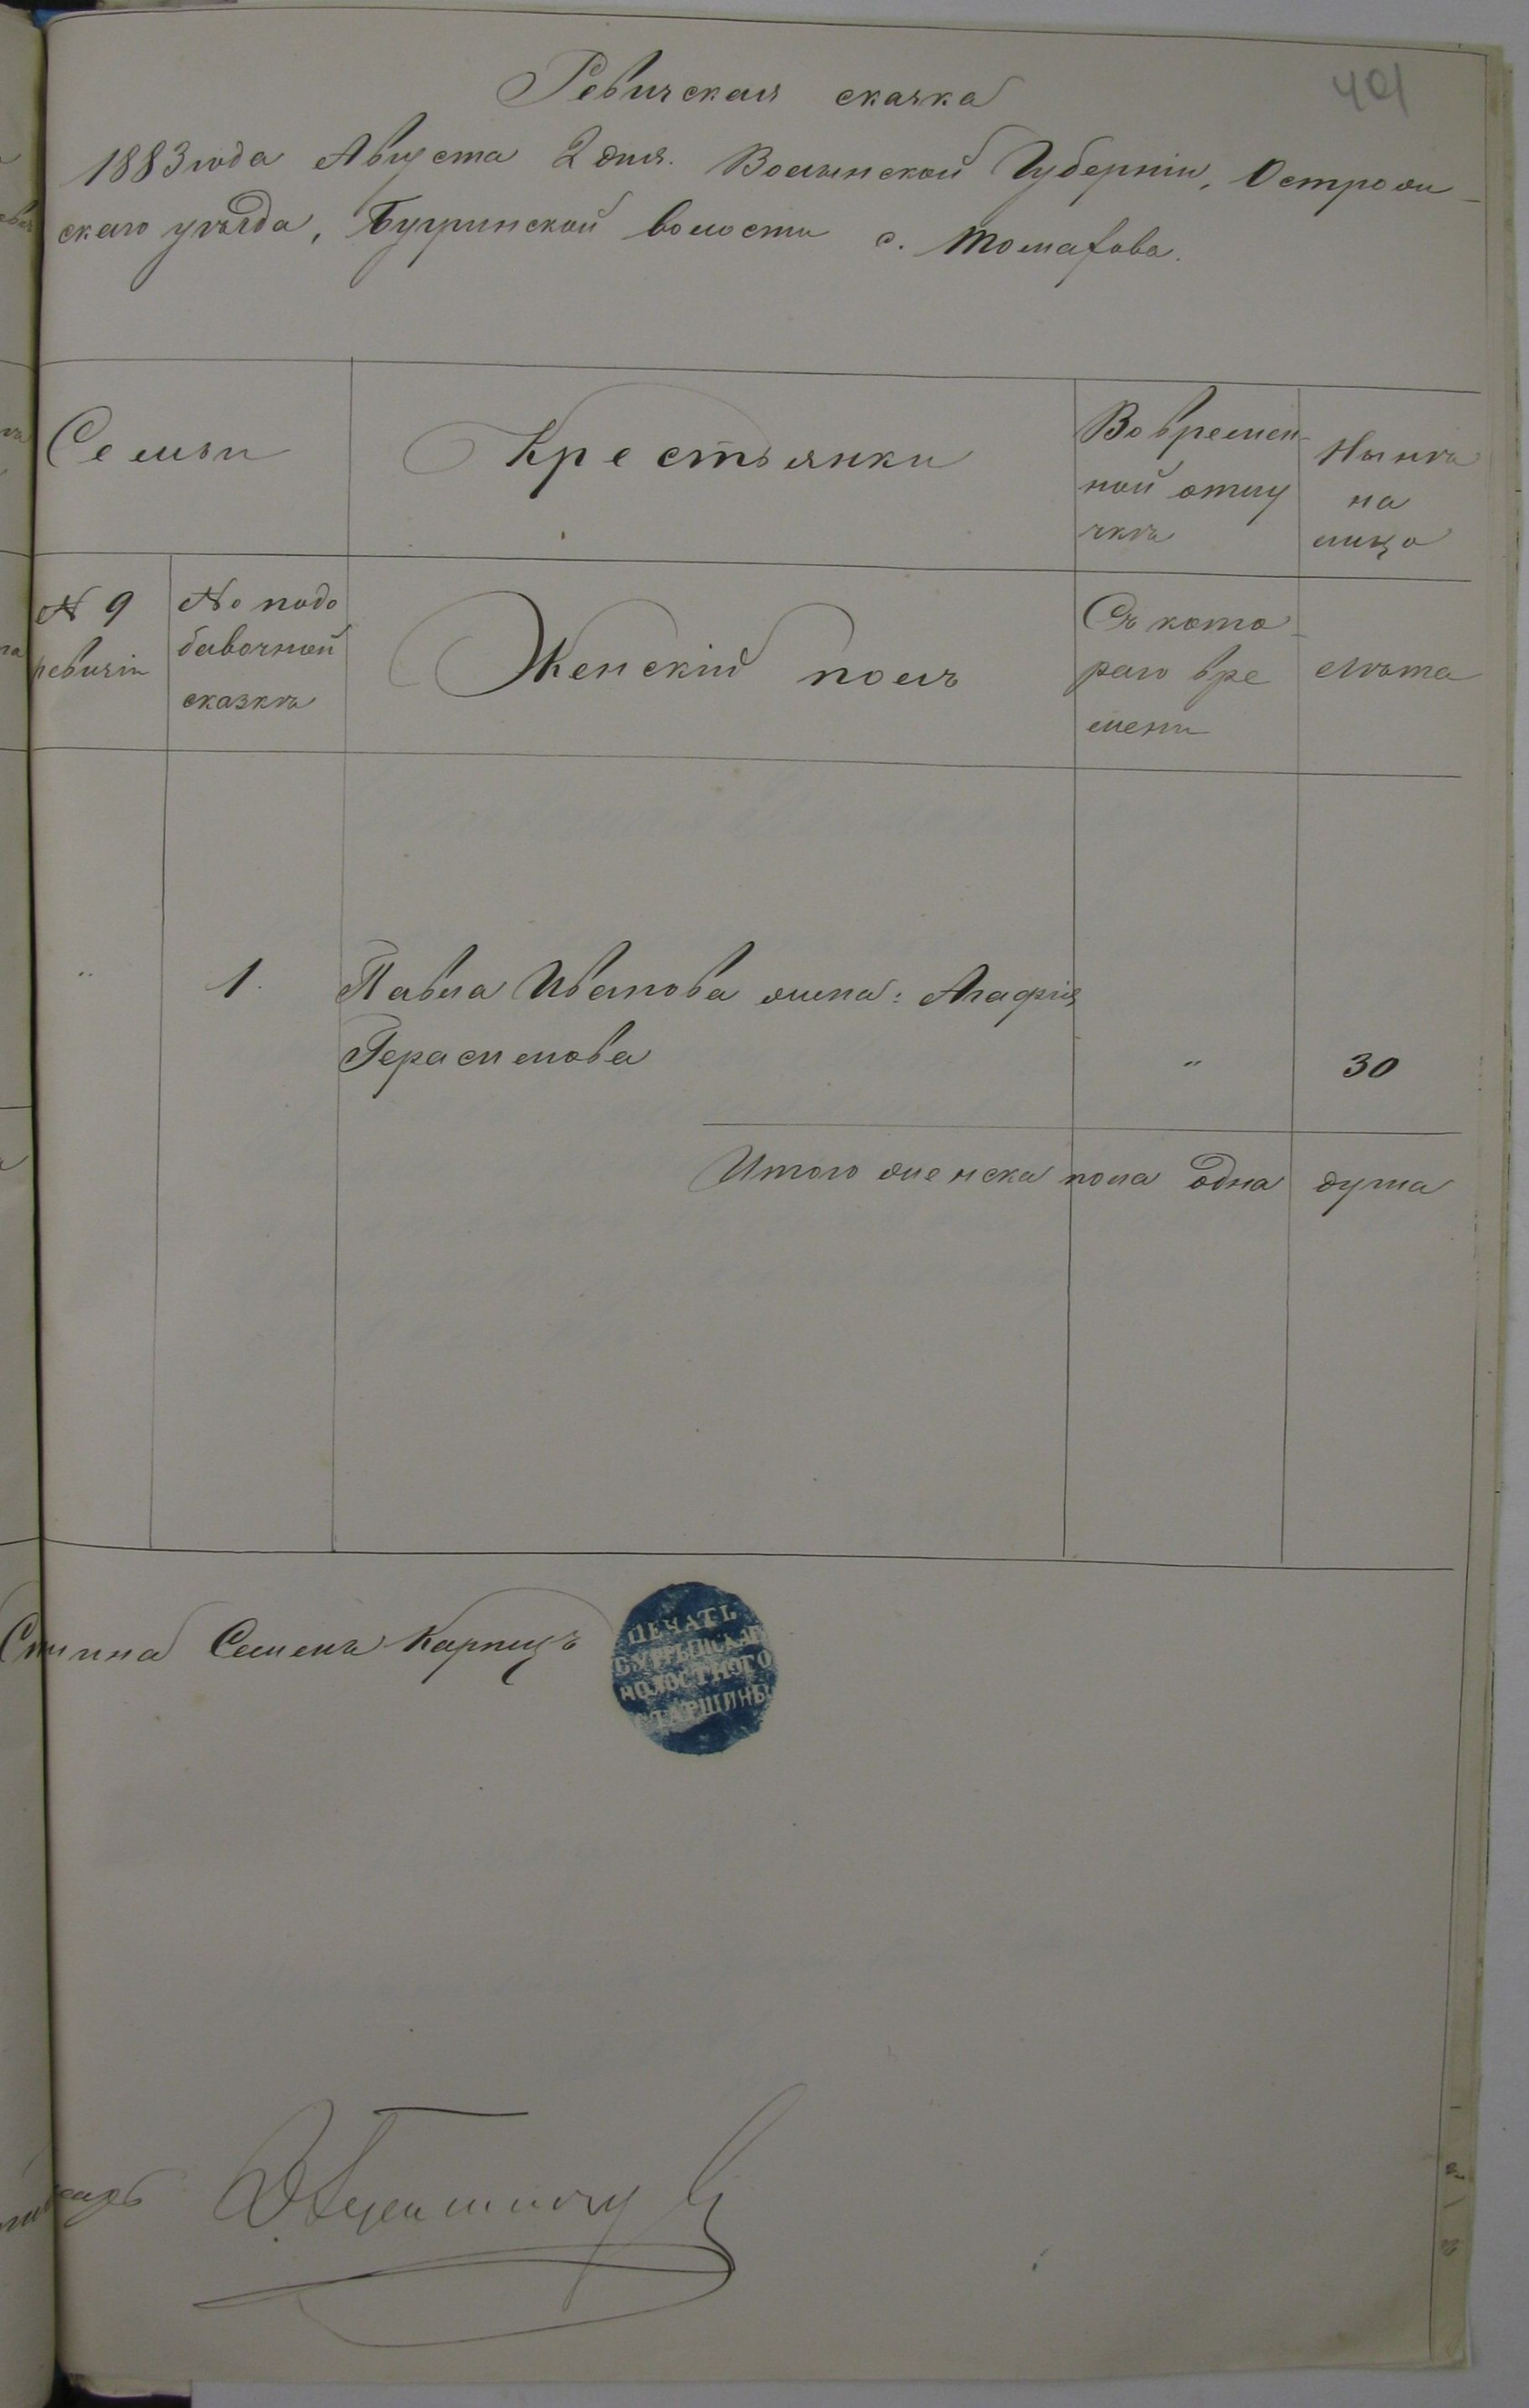 401
Ревизская сказка
1883 года Августа 2 дня. Волынской Губерніи, Острож-
скаго уѣзда, Бугринской волости с. Томахова.
Семьи
Крестьянки
Во времен-
ной отлу
чкѣ
Нынѣ
на
лицо
N 9
ревизіи
No по до
бавочной
сказкѣ
Женскій полъ
Съ кото-
раго вре
мени
лѣта
" 1. Павла Иванова жена: Агафія
Герасимова " 30
Итого женска пола одна душа
Семенъ Карпецъ
ПЕЧАТЬ
БУГРИНСКАГО
ВОЛОСТНОГО
СТАРШИНЫ